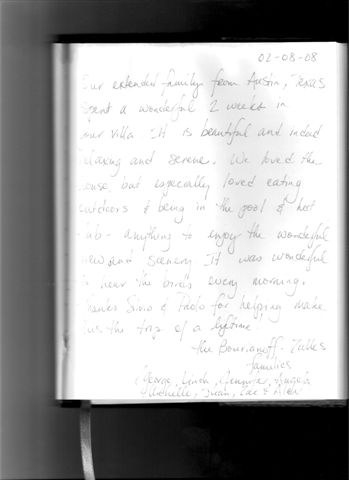 02-08-08
Our extended family from Austin, Texas
spent a wonderful 2 weeks in
your villa. It is beautiful and indeed
relaxing and serene. We loved the
house, but especially loved eating
outdoors & being in the pool & hot
tub - anything to enjoy the wonderful
view and scenery. It was wonderful
to hear the birds every morning.
Thanks Silvio & Paolo for helping make
this the trip of a lifetime!
the Bourianoff -
families
George, Linda, Jennifer, Angela
Michelle,